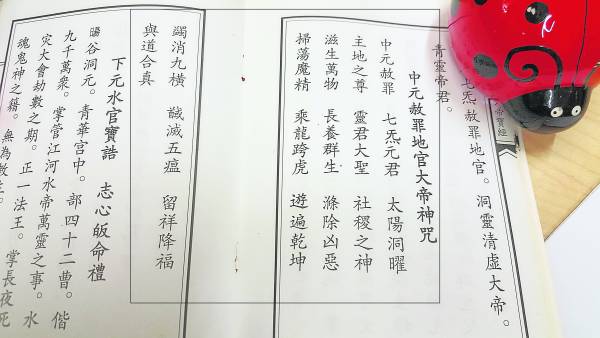 帝寶經
七炁赦罪地官。洞靈清虛大帝。
青靈帝君。
中元赦罪地官大帝神咒
中元赦罪 七炁元君 太陽洞曜
主地之尊 靈君大聖 社稷之神
滋生萬物 長養群生 滌除凶惡
掃蕩魔精 乘龍跨虎 遊遍乾坤
蠲消九橫 諴滅五瘟 留祥降福
與道合真
下元水官寶誥 志心皈命禮
暘谷洞元。青華宮中。部四十二曹。偕
九千萬眾。掌管江河水帝萬靈之事。水
灾大會劫數之期。正一法王。掌長夜死
魂鬼神之籍。無為教